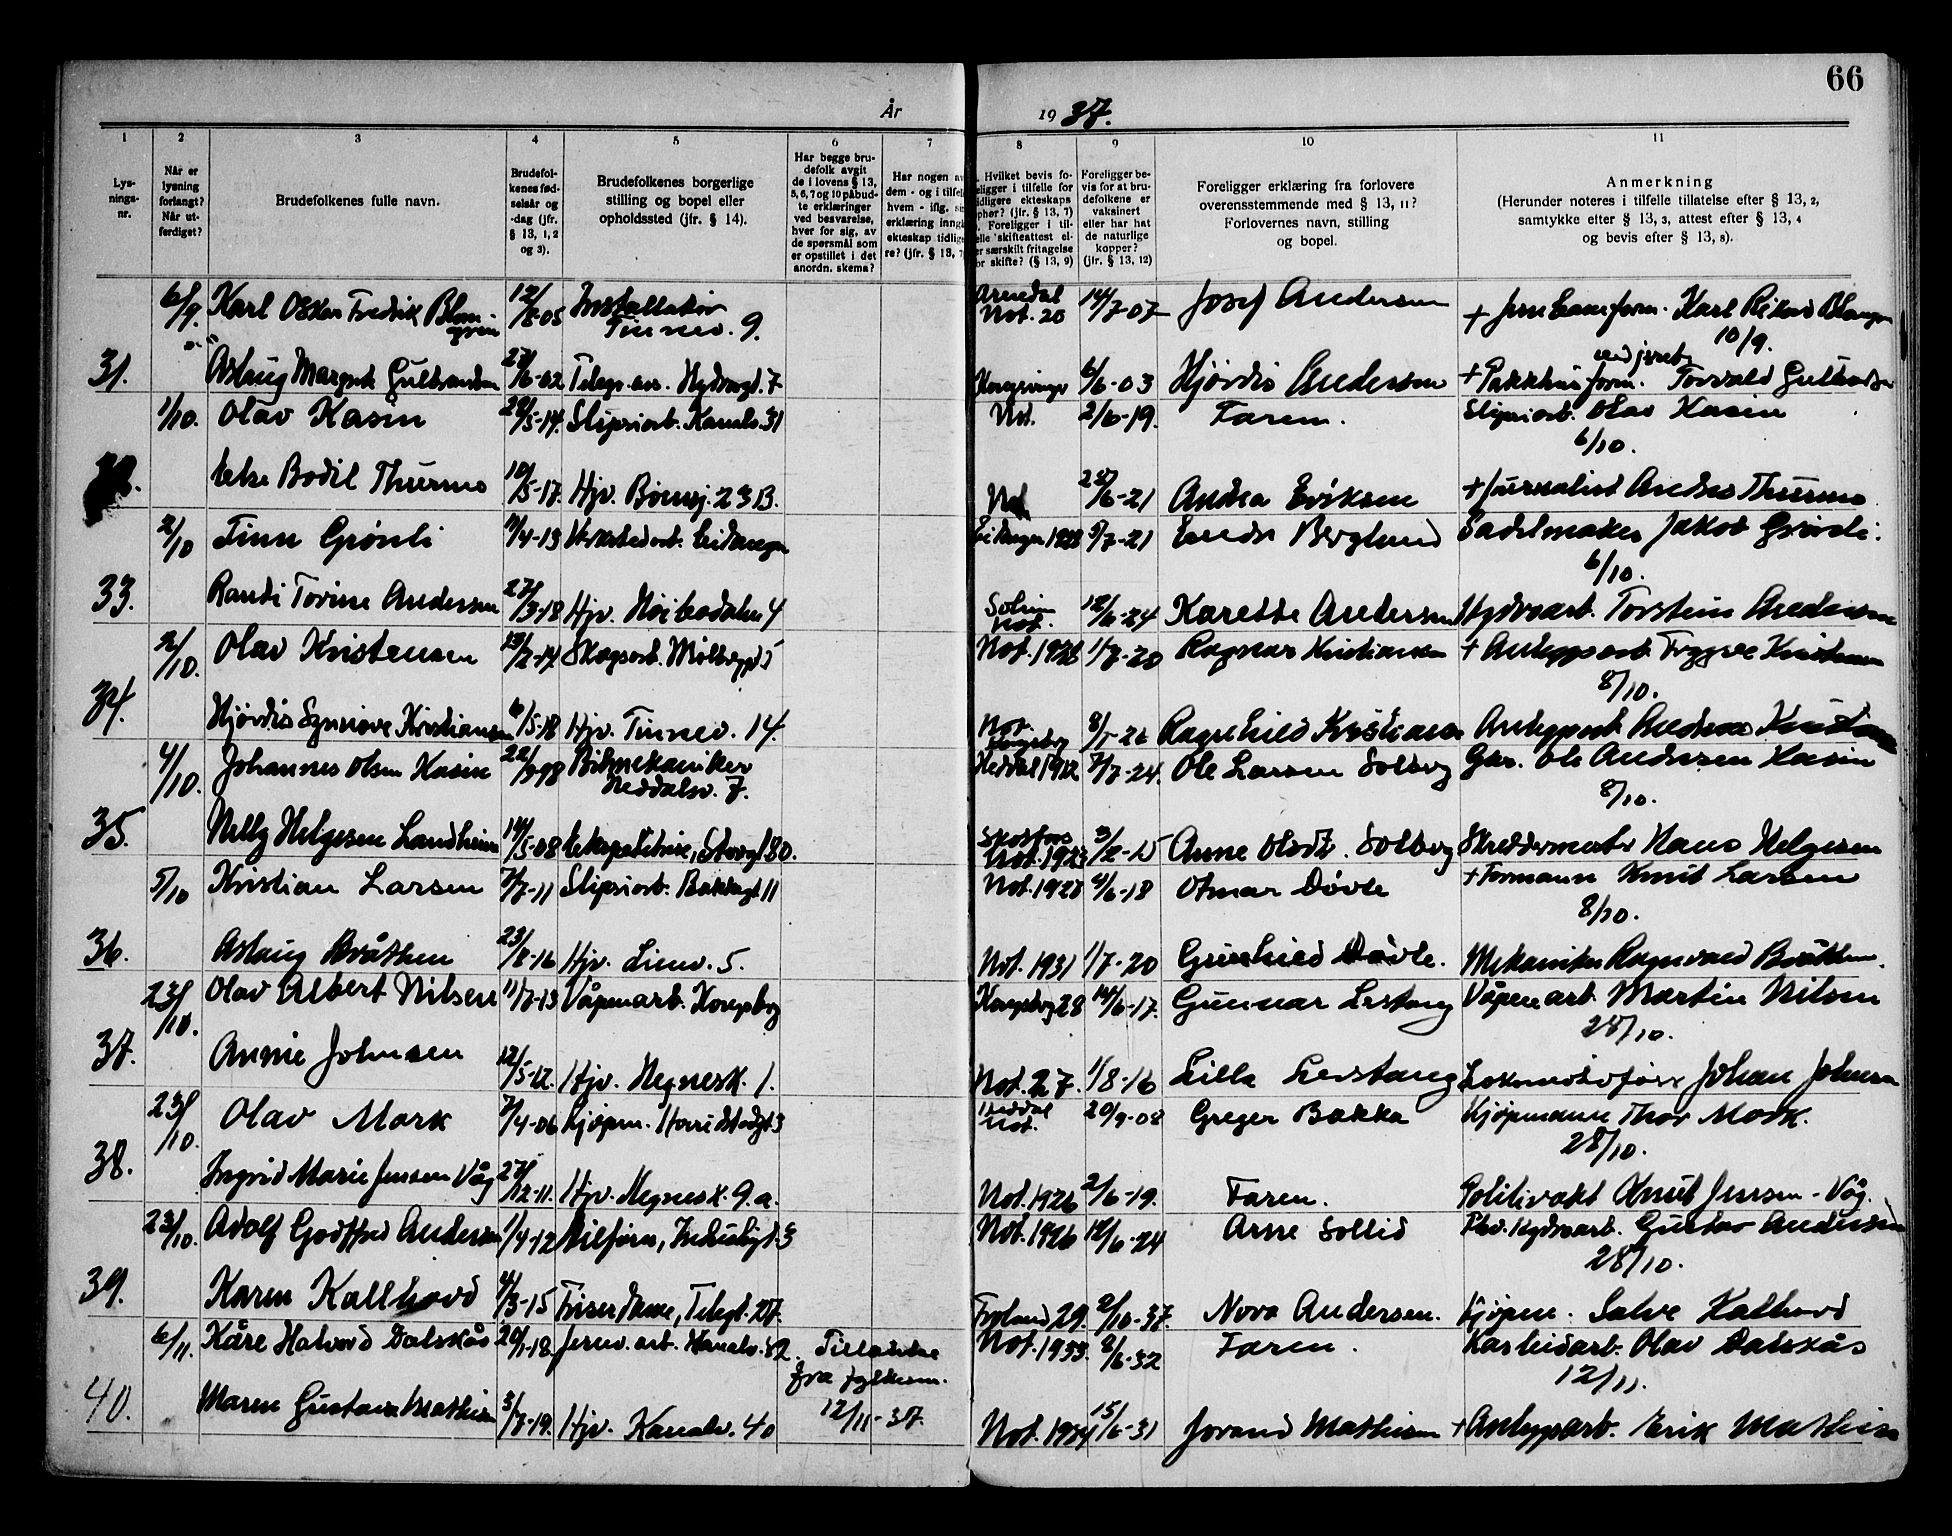 66
År 1937.
1 2 3 4 5 6 7 8 9 10 11
Lysningsnr.
Når er lysning forlangt? Når utferdiget?
Brudefolkenes fulle navn.
Brudefolkenes fødselsår og -dag (jfr. § 13, 1, 2 og 3).
Brudefolkenes borgerlige stilling og bopel eller opholdssted (jfr. § 14).
Har begge brudefolk avgit de i lovens § 13, 5, 6, 7 og 10 påbudte erklæringer ved besvarelse, hver for sig, av de spørsmål som er opstillet i det anordn. skema?
Har nogen av
dem - og i tilfelle
hvem - iflg.
erklæring inngått
ekteskap tidligere? (jfr. § 13, 7
Hvilket bevis fo-
religger i tilfelle for
tidligere ekteskaps
ophør? (jfr. § 13, 7)
Foreligger i til-
elle skifteattest el-
er særskilt fritagelse
or skifte? (§ 13, 9)
Foreligger bevis for at brudefolkene er vaksinert eller har hat de naturlige kopper? (jfr. § 13, 12)
Foreligger erklæring fra forlovere overensstemmende med § 13, 11? Forlovernes navn, stilling og bopel.
Anmerkning
(Herunder noteres i tilfelle tillatelse efter § 13, 2, samtykke efter § 13, 3, attest efter § 13, 4 og bevis efter § 13, 8).
6/9. Karl Oskar Fredrik Blomgren 05 Installatør Tinnev. 9. Arendal Not. 20 14/7-07 Josef Andersen + Karl Rikard
10/9.
31. Aslaug Margit Gulbrandsen 27/6-02 Hydrogt. 7 6/6-03 Hjørdis Andersen + Pakkhusform. Torvald
1/10. Olav Kasin 5-14. Sliperiarb. Kanalv. 31 Not. 2/6-19. Faren. Sliperiarb. Olav Kasin
6/10.
Else Bodil Thurmo 10/5-17. Hjv. 23 B. 6-21 Andrea Eriksen + Journalist Thurmo
2/10 Finn Grønli 4-13 Verkstedarb. Eidanger 1928 5/7-21 Berglund Sadelmaker Jakob Grønli.
6/10.
33. Randi Torine Andersen 27/3-18 Hjv. 4 Not. 12/6-24 Karette Andersen Hydroarb. Torstein Andersen
2/10. Olav Kristensen 13/2-14 Skogsarb. Not. 1928 1/7-20 Ragnar Kristiansen + Anleggsarb. Trygve
8/10.
34. Hjørdis Synnøve Kristiansen 6/5-18 Hjv. Tinnev. 14. Not. Ragnhild Kristiansen Anleggsarb.
4/10. Johannes Olsen Kasin 22/9-98 Bilmekaniker Heddalsv. 7. Heddal 1912 7/7-24. Ole Larsen Solberg Gbr. Ole Andersen Kasin
8/10.
35. Nelly Helgesen Landheim 14/5-08 Ekspeditrise, Storgt 80. Skotfoss Not. 1923 Anne Olsdt. Solberg Skreddermester Hans Helgesen
5/10 Kristian Larsen 7/7-11 Sliperiarb. Bakkegt 11 Not. 1928 4/6-18 Otmar Døvle + Formann Knut Larsen
8/10.
36. Aslaug Bråthen 23/8-16 Hjv. Lienv. 5. Not. 1931 1/7-20 Gunhild Døvle. Mekaniker Ragnvald Bråthen.
23/10. Olav Albert Nilsen Våpenarb. Kongsberg Kongsberg 28 14/6-17. Gunnar Lestang Våpenarb. Martin Nilsen
28/10.
37. Annie Johnsen 12/5-12. Hjv. Hegnesk. 1. Not. 27. 1/8-16 Lilla Lestang Lokomotivfører Johan Johnsen
23/10. Olav Mork 7/4-06 Kjøpm. Heddal Not. 20/9-08 Greger Bakka Kjøpmann Thor Mork.
28/10.
38. Ingrid Marie Jensen Våg 27/12-11. Hjv. Hegnesk. 9. a. Not. 1926 2/6-19. Faren. Politivakt Knut Jensen-Våg.
23/10. Adolf Godtfred Andersen 1/4-12 Bilfører, Industrigt. 3 Not. 1926 12/6-24 Arne Sollid Hydroarb. Gustav Andersen
28/10.
39. Karen Kallhovd 4/3-15 Friserdame, Telegt. 27. Froland 29. 2/10-37. Nora Andersen. Kjøpm. Salve Kalhovd
6/11. Kåre Halvord Dalskås 20/1-18. Jernv. arb. Kanalv. 32. Tillatelse fra fylkesm. 12/11-37. Not. 1933. 2/6-32 Faren. Karbidarb. Olav Dalskås
12/11.
40. Maren Gustava Mathisen 3/7-19. Hjv. Kanalv. 40 Not. 1934 15/6-31 Jorand Mathisen + Anleggsarb. Erik Mathisen